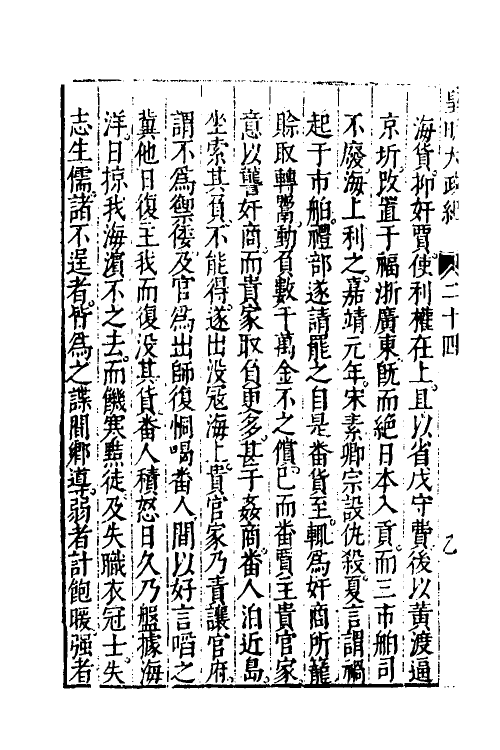 皇明大政紀 二十四
海貨抑奸賈使利權在上且以省戍守費後以黃渡逼
京圻改置于福浙廣東旣而絕日本入貢而三市舶司
不廢海上利之嘉靖元年宋素卿宗設仇殺夏言謂禍
起于市舶禮部遂請罷之自是番貨至輒爲奸商所籠
賖取轉鬻動負數千萬金不之償已而番賈主貴官家
意以讐奸商而貴家取負更多甚于姦商番人泊近島
坐索其負不能得遂出没宼海上貴官家乃責讓官府
謂不爲禦倭及官爲出師復恫喝番人間以好言啗之
冀他日復主我而復没其貨番人積怒日久乃盤據海
洋日掠我海濵不之去而饑寒黠徒及失職衣冠士失
志生儒諸不逞者皆爲之諜間鄉導弱者計飽暖强者